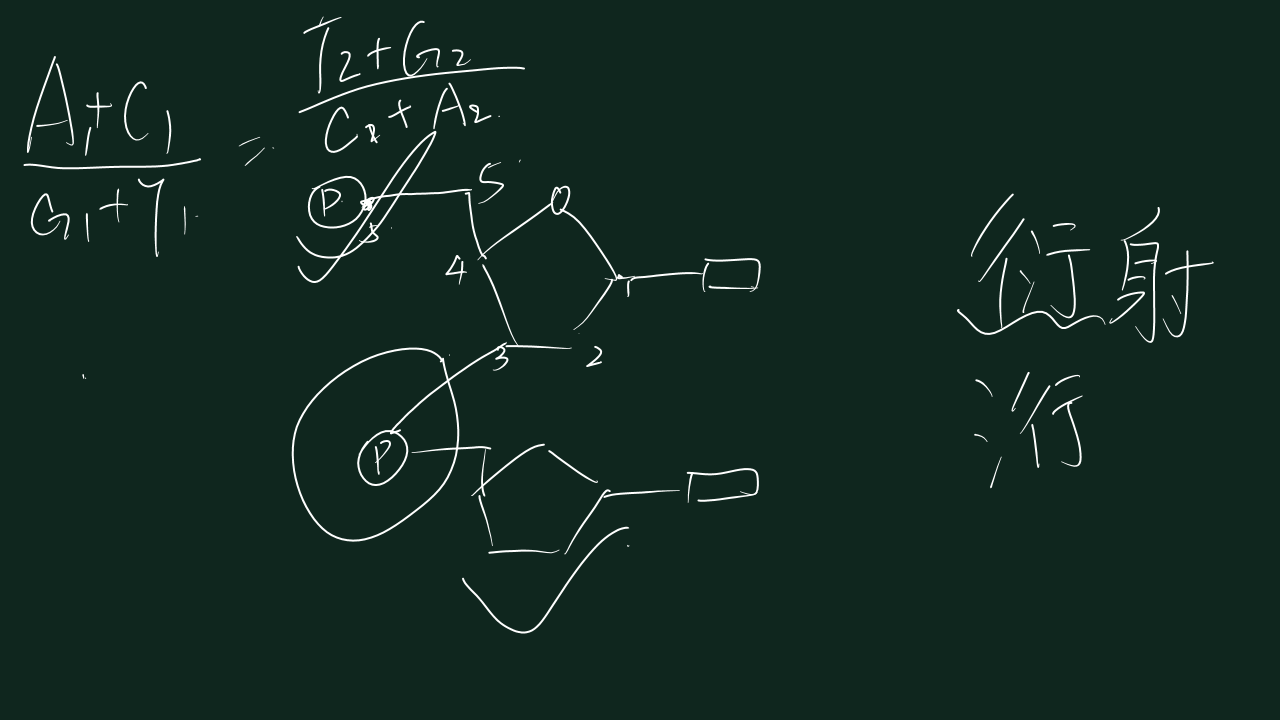 A₁+C₁ / G₁+T₁ = T₂+G₂ / C₂+A₂
P
5
O
4
1
3
2
P
衍射